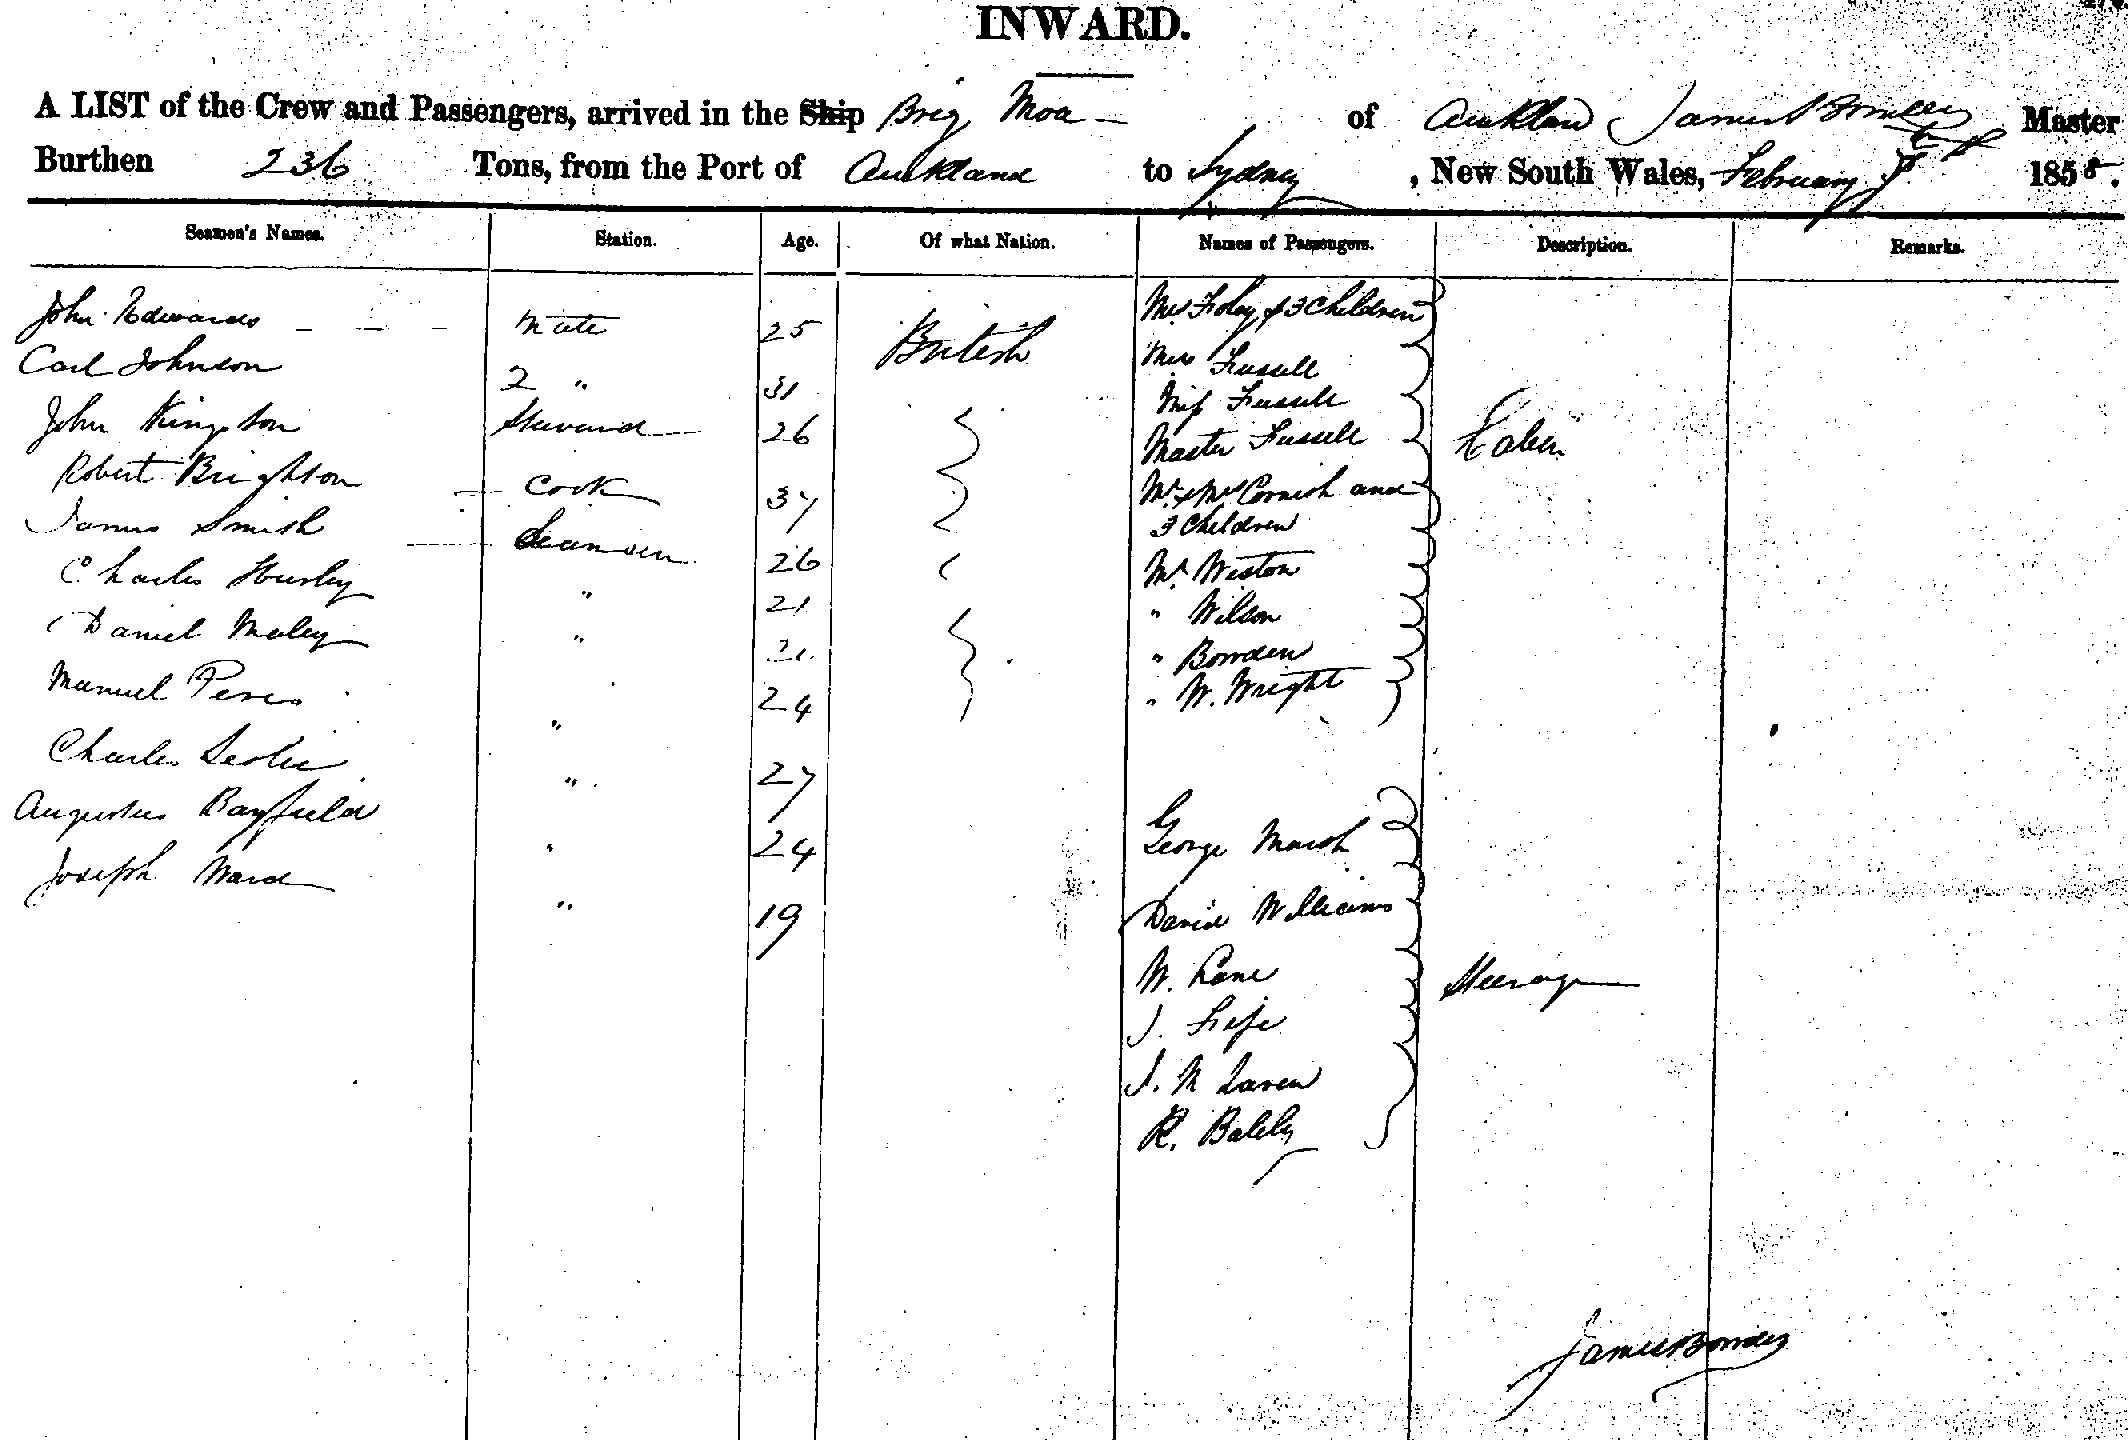 INWARD.
A LIST of the Crew and Passengers, arrived in the Ship Brig Moa of Auckland James Bowden Master
Burthen 236 Tons, from the Port of Auckland to Sydney, New South Wales, February 1855.
Seamen's Names. Station. Age. Of what Nation. Names of Passengers. Description. Remarks.
John Edwards Mate 25 British Mrs Foley & 3 Children
Carl Johnson 2 " 31 Mrs Fussell
Miss Fussell
John Kingston Steward 26 Master Fussell Cabin
Robert Brighton Cook 37 Mr & Mrs Cornish and
3 Children
James Smith Seaman 26 Mr Weston
Charles Hurley " 21 " Wilson
Daniel Maley " 21 " Bowden
Manuel Peres " 24 " W. Wright
Charles Leslie " 27
Augustus Bayfield " 24 George Marsh
Joseph Ward " 19 David Williams
W. Lane Steerage
J.
J.
R.
James Bowden